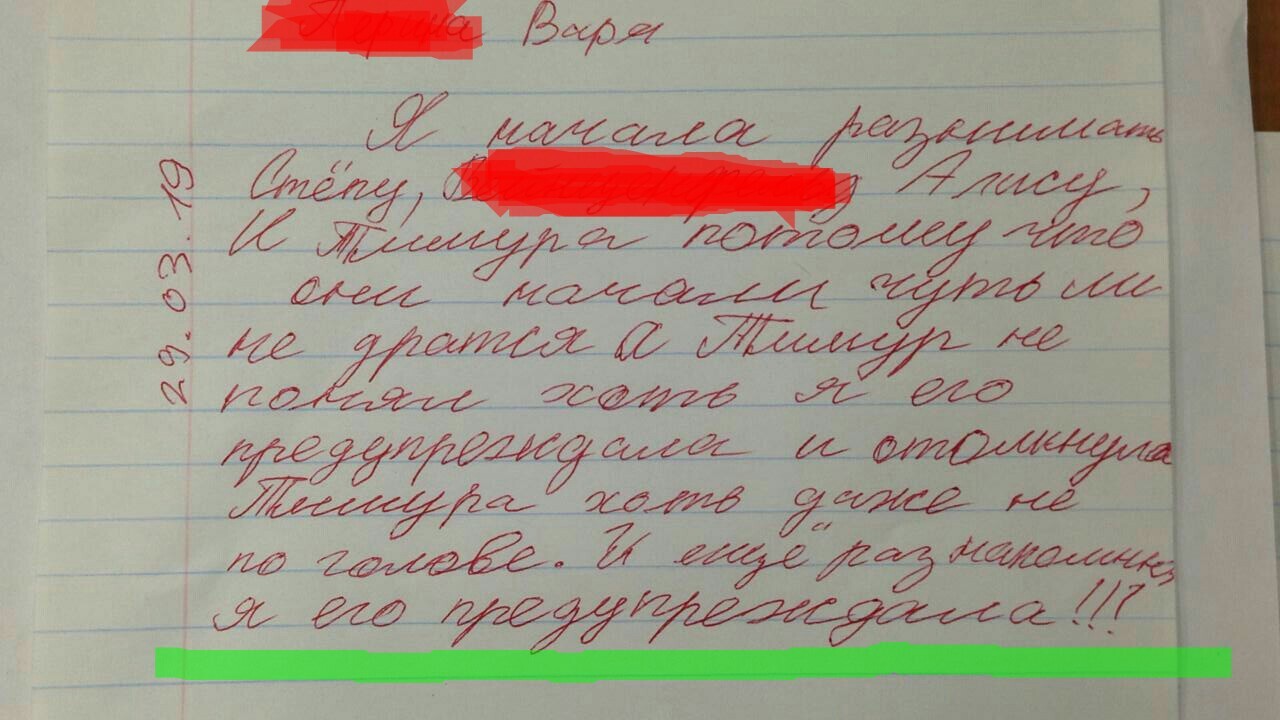 Варя
Я начала разнимать
Стёпу, Алису,
И Тимура потому что
они начали чуть ли
не дратся А Тимур не
понял хоть я его
предупреждала и отолкнула
Тимура хоть даже не
по голове. И ещё раз напомню
я его предупреждала!!!
29.03.19